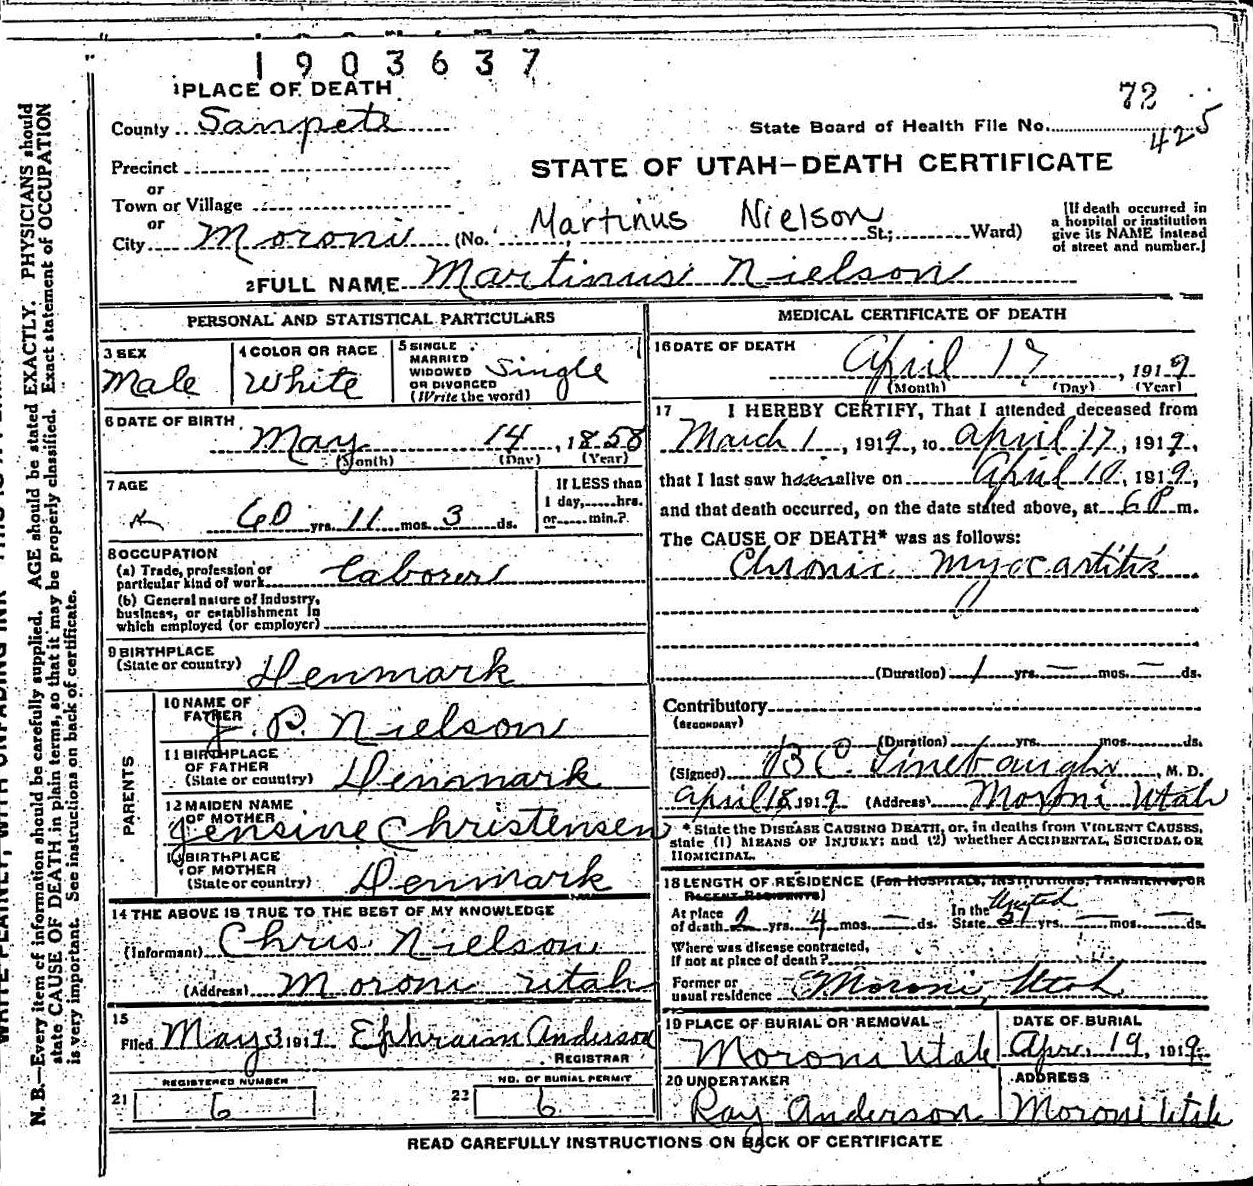 1903637
1 PLACE OF DEATH
72
County Sanpete
State Board of Health File No. 425
Precinct
STATE OF UTAH—DEATH CERTIFICATE
or
Town or Village
or
City Moroni (No. Martinus Nielson St.; Ward)
[If death occurred in
a hospital or institution
give its NAME instead
of street and number.]
2 FULL NAME Martinus Nielson
PERSONAL AND STATISTICAL PARTICULARS
3 SEX
Male
4 COLOR OR RACE
White
5 SINGLE
MARRIED
WIDOWED
OR DIVORCED
(Write the word)
Single
6 DATE OF BIRTH
May 14, 1858
(Month) (Day) (Year)
7 AGE
60 yrs. 11 mos. 3 ds.
If LESS than
1 day, hrs.
or min.?
8 OCCUPATION
(a) Trade, profession or
particular kind of work Laborer
(b) General nature of Industry,
business, or establishment in
which employed (or employer)
9 BIRTHPLACE
(State or country) Denmark
PARENTS
10 NAME OF
FATHER
J. P. Nielson
11 BIRTHPLACE
OF FATHER
(State or country) Denmark
12 MAIDEN NAME
OF MOTHER
Jensine Christensen
13 BIRTHPLACE
OF MOTHER
(State or country) Denmark
14 THE ABOVE IS TRUE TO THE BEST OF MY KNOWLEDGE
(Informant) Chris Nielson
(Address) Moroni Utah
15
Filed May 3 1919 Ephraim Anderson
REGISTRAR
REGISTERED NUMBER
21 6
NO. OF BURIAL PERMIT
22 6
MEDICAL CERTIFICATE OF DEATH
16 DATE OF DEATH
April 17, 1919
(Month) (Day) (Year)
17 I HEREBY CERTIFY, That I attended deceased from
March 1, 1919, to April 17, 1919,
that I last saw h alive on April 10, 1919,
and that death occurred, on the date stated above, at 6 P m.
The CAUSE OF DEATH* was as follows:
Chronic Myocartitis
(Duration) 1 yrs. — mos. — ds.
Contributory
(SECONDARY)
(Duration) yrs. mos. ds.
(Signed) B C. Linebaugh, M. D.
April 18, 1919 (Address) Moroni Utah
*State the DISEASE CAUSING DEATH, or, in deaths from VIOLENT CAUSES,
state (1) MEANS OF INJURY; and (2) whether ACCIDENTAL, SUICIDAL OR
HOMICIDAL.
18 LENGTH OF RESIDENCE (FOR HOSPITALS, INSTITUTIONS, TRANSIENTS, OR
RECENT RESIDENTS)
At place
of death 2 yrs. 4 mos. — ds. In the United
State yrs. — mos. — ds.
Where was disease contracted,
If not at place of death?
Former or
usual residence Moroni, Utah
19 PLACE OF BURIAL OR REMOVAL
Moroni Utah
DATE OF BURIAL
Apr. 19, 1919
20 UNDERTAKER
Ray Anderson
ADDRESS
Moroni Utah
READ CAREFULLY INSTRUCTIONS ON BACK OF CERTIFICATE
N. B.—Every item of information should be carefully supplied. AGE should be stated EXACTLY. PHYSICIANS should
state CAUSE OF DEATH in plain terms, so that it may be properly classified. Exact statement of OCCUPATION
is very important. See instructions on back of certificate.